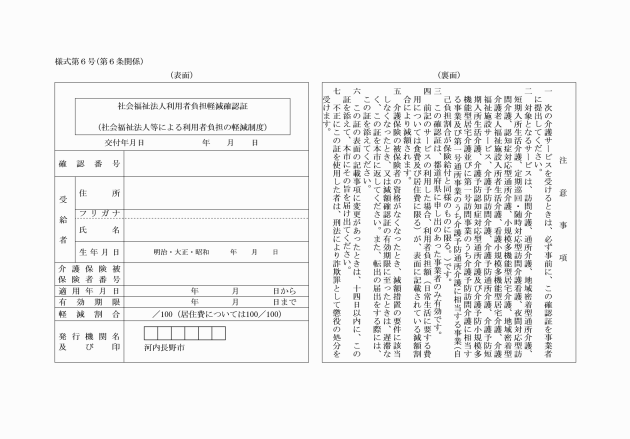 様式第６号(第６条関係)
(表面)
社会福祉法人利用者負担軽減確認証
(社会福祉法人等による利用者負担の軽減制度)
交付年月日　年　月　日
確認番号
受給者
住所
フリガナ
氏名
生年月日　明治・大正・昭和　年　月　日
介護保険被
保険者番号
適用年月日　年　月　日から
有効期限　年　月　日まで
軽減割合　/100（居住費については100/100）
発行機関名
及び印
河内長野市
(裏面)
注意事項
一　次の介護サービスを受けるときは、必ず事前に、この確認証を事業者
に提示してください。
二　対象となるサービスは、訪問介護、通所介護、地域密着型通所介護、
短期入所生活介護、定期巡回・随時対応型訪問介護看護、夜間対応型訪
問介護、認知症対応型通所介護、小規模多機能型居宅介護、地域密着型
介護老人福祉施設入所者生活介護、看護小規模多機能型居宅介護、介護
福祉施設サービス、介護予防訪問介護、介護予防通所介護、介護予防短
期入所生活介護、介護予防認知症対応型通所介護及び介護予防小規模多
機能型居宅介護並びに第一号訪問事業のうち介護予防訪問介護に相当す
る事業及び第一号通所事業のうち介護予防通所介護に相当する事業（自
己負担割合が保険給付と同様のものに限る。）です。
三　この確認証は、都道府県に申し出のあった事業者のみ有効です。
四　前記のサービスの利用した場合、利用者負担額（日常生活に要する費
用については食費及び居住費に限る）が、表面に記載されている減額割
合により減額されます。
五　介護保険の被保険者の資格がなくなったとき、減額措置の要件に該当
しなくなったとき、又は減額確認証の有効期限に至ったときは、遅滞な
く、この証を本市に返してください。また、転出の届出をする際には、
この証を添えてください。
六　この証の表面の記載事項に変更があったときは、十四日以内に、この
証を添えて、本市にその旨を届け出てください。
七　不正にこの証を使用した者は、刑法により詐欺罪として懲役の処分を
受けます。